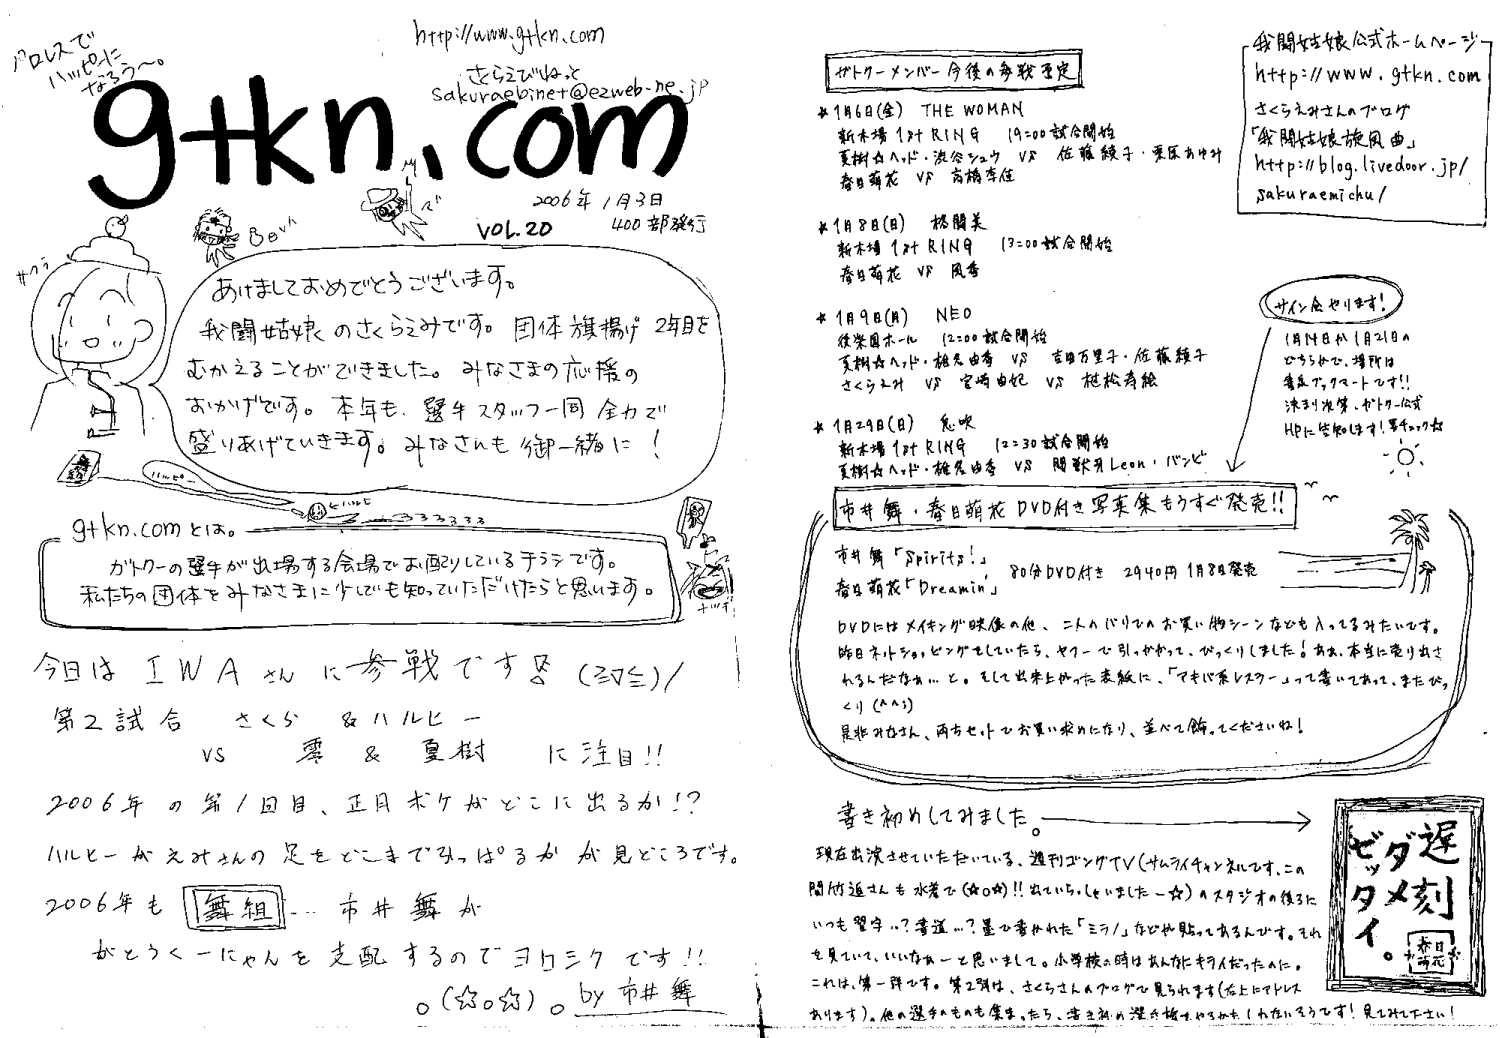 プロレスで
ハッピーに
なろう〜。
http://www.gtkn.com
さくらえびねっと
sakuraebinet@ezweb-ne.jp
gtkn.com
2006年1月3日
VOL.20 400部発行
サクラ
あけましておめでとうございます。
我闘姑娘のさくらえみです。団体旗揚げ2年目を
むかえることができました。みなさまの応援の
おかげです。本年も、選手スタッフ一同全力で
盛りあげていきます。みなさんも御一緒に!
ハッピー
gtkn.comとは。
ガトクーの選手が出場する会場でお配りしているチラシです。
私たちの団体をみなさまに少しでも知っていただけたらと思います。
ナツキ
今日はIWAさんに参戦です!! (≡▽≡)/
第2試合 さくら & ハルヒー
vs 零 & 夏樹 に注目!!
2006年の第1回目、正月ボケがどこに出るか!?
ハルヒーがえみさんの足をどこまで引っぱるかが見どころです。
2006年も 舞組 … 市井舞が
がとうくーにゃんを支配するのでヨロシクです!!
。(☆o☆)。by 市井舞
ガトクーメンバー今後の参戦予定
* 1月6日(金) THE WOMAN
新木場 1st RING 19:00試合開始
夏樹☆ヘッド・渋谷シュウ VS 佐藤綾子・栗原あゆみ
春日萌花 VS 高橋李佳
* 1月8日(日) 格闘美
新木場 1st RING 13:00試合開始
春日萌花 VS 風香
* 1月9日(月) NEO
後楽園ホール 12:00試合開始
夏樹☆ヘッド・椎名由香 VS 吉田万里子・佐藤綾子
さくらえみ VS 宮崎由妃 VS 植松寿絵
* 1月29日(日) 息吹
新木場 1st RING 12:30試合開始
夏樹☆ヘッド・椎名由香 VS 闘獣牙Leon・バンビ
我闘姑娘公式ホームページ
http://www.gtkn.com
さくらえみさんのブログ
「我闘姑娘旋風曲」
http://blog.livedoor.jp/
sakuraemichu/
サイン会やります!
1月14日か1月21日の
どちらかで、場所は
書泉ブックマートです!!
決まり次第、ガトクー公式
HPに告知します!要チェック☆
市井舞・春日萌花DVD付き写真集もうすぐ発売!!
市井舞「Spirits!」
春日萌花「Dreamin'」 80分DVD付き 2940円 1月8日発売
DVDにはメイキング映像の他、二人のバリでのお買い物シーンなども入ってるみたいです。
昨日ネットショッピングをしていたら、ヤフーで引っかかって、びっくりしました!ああ、本当に売り出さ
れるんだなぁ…と。そして出来上がった表紙に、「アキバ系レスラー」って書いてあって、またびっ
くり(^^;)
是非みなさん、両方セットでお買い求めになり、並べて飾ってくださいね!
書き初めしてみました。
現在出演させていただいている、週刊ゴングTV(サムライチャンネルです、この
間竹迫さんも水着で(☆o☆)!!出ていらっしゃいましたー☆)のスタジオの後ろに
いつも習字…?書道…?墨で書かれた「ミラノ」などが貼ってあるんです。それ
を見ていて、いいなぁーと思いまして。小学校の時はあんなにキライだったのに。
これは、第一弾です。第2弾は、さくらさんのブログで見られます(右上にアドレス
あります)。他の選手のものも集まったら、書き初め選手権をやるかもしれないそうです!見てみて下さい!
遅刻
ダメ
ゼッタイ。
春日
萌花